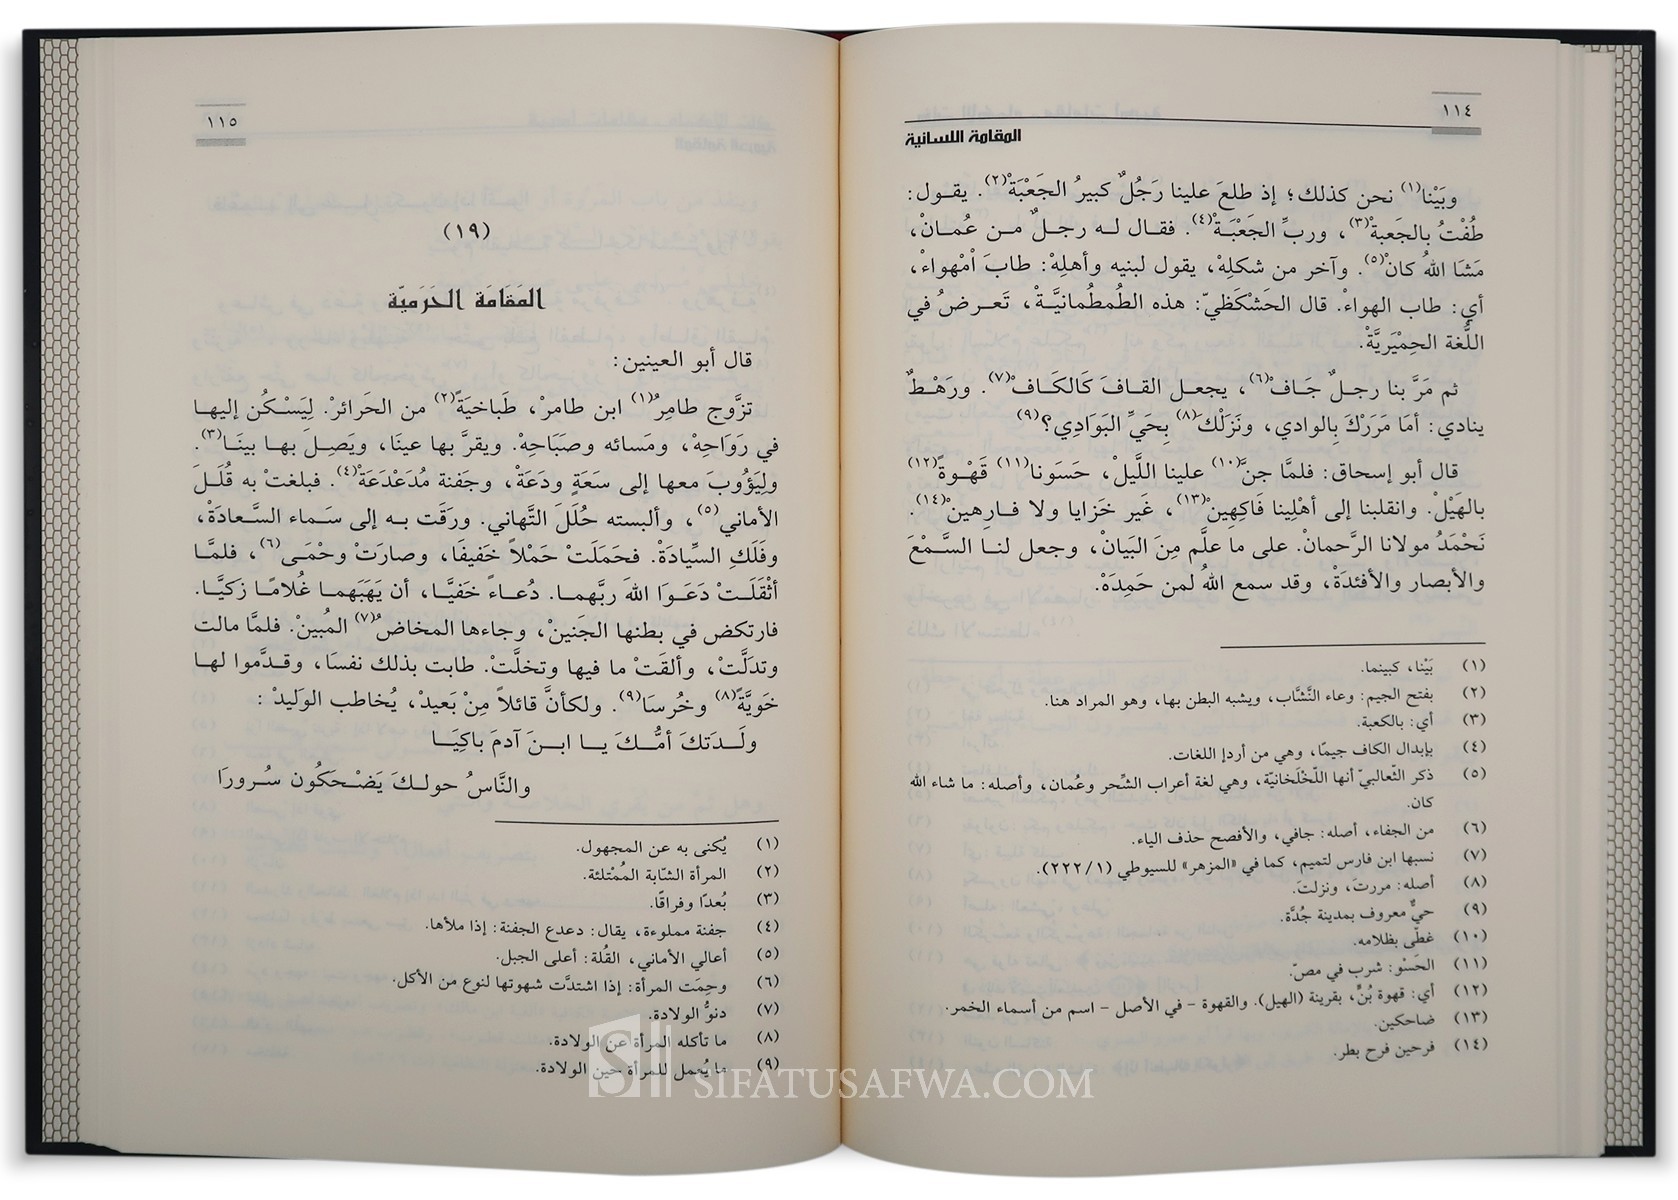 ١١٤
المقامة اللسانية
وبَيْنا(١) نحن كذلك؛ إذ طلعَ علينا رَجُلٌ كبيرُ الجَعْبَةْ(٢). يقول:
طُفْتُ بالجَعبةْ(٣)، وربِّ الجَعْبَةْ(٤). فقال له رجلٌ من عُمانْ،
مَشَا اللهُ كانْ(٥). وآخر من شكلِهْ، يقول لبنيه وأهلِهْ: طابَ امْهواءْ،
أي: طاب الهواءْ. قال الحَشْكَظيّ: هذه الطُمطُمانيَّةْ، تَعرضُ في
اللُّغة الحِمْيَريَّةْ.
ثم مَرَّ بنا رجلٌ جَافْ(٦)، يجعل القافَ كَالكَافْ(٧). ورَهْطٌ
ينادي: أمَا مَرَرْكَ بِالوادي، ونَزَلْكَ(٨) بِحَيِّ البَوَادِي؟(٩)
قال أبو إسحاق: فلمَّا جنَّ(١٠) علينا اللَّيلْ، حَسَونا(١١) قَهْوةً(١٢)
بالهَيْلْ. وانقلبنا إلى أهْلِينا فَاكِهِينْ(١٣)، غَير خَزايا ولا فارِهينْ(١٤).
نَحْمَدُ مولانا الرَّحمانْ. على ما علَّم مِنَ البَيانْ، وجعل لنا السَّمْعَ
والأبصار والأفئدَةْ، وقد سمع اللهُ لمن حَمِدَهْ.
(١) بَيْنا، كبينما.
(٢) بفتح الجيم: وعاء النَّشَّاب، ويشبه البطن بها، وهو المراد هنا.
(٣) أي: بالكعبة.
(٤) بإبدال الكاف جيمًا، وهي من أردإ اللغات.
(٥) ذكر الثّعالبيّ أنها اللّخْلَخانيّة، وهي لغة أعراب الشِّحر وعُمان، وأصله: ما شاء الله
كان.
(٦) من الجفاء، أصله: جافي، والأفصح حذف الياء.
(٧) نسبها ابن فارس لتميم، كما في «المزهر» للسيوطي (٢٢٢/١).
(٨) أصله: مررتَ، ونزلتَ.
(٩) حيٌّ معروف بمدينة جُدَّة.
(١٠) غطّى بظلامه.
(١١) الحَسْو: شرب في مصّ.
(١٢) أي: قهوة بُنٍّ، بقرينة (الهيل). والقهوة - في الأصل - اسم من أسماء الخمر.
(١٣) ضاحكين.
(١٤) فرحين فرح بطر.
١١٥
(١٩)
المَقَامَة الحَرَميّة
قال أبو العينين:
تزَّوج طامِرُ(١) ابن طامرْ، طَباخيَةً(٢) من الحَرائرْ. لِيَسْكُن إليها
في رَوَاحِهْ، ومَسائه وصبَاحِهْ. ويقرَّ بها عينَا، ويَصِلَ بها بينَا(٣).
ولِيَؤُوبَ معها إلى سَعَةٍ ودَعَةْ، وجَفنة مُدَعْدَعَةْ(٤). فبلغتْ به قُلَلَ
الأماني(٥)، وألبسته حُلَلَ التَّهاني. ورَقَت به إلى سَماء السَّعادَةْ،
وفَلَكِ السِّيادَةْ. فحَمَلَتْ حَمْلاً خَفيفَا، وصارَتْ وحْمَى(٦)، فلمَّا
أثْقَلَتْ دَعَوَا اللهَ ربَّهما. دُعاءً خَفيَّا، أن يَهَبَهما غُلامًا زكيَّا.
فارتكض في بطنها الجَنينْ، وجاءها المخاضُ(٧) المُبينْ. فلمَّا مالت
وتدَلَّتْ، وألقَتْ ما فيها وتخلَّتْ. طابت بذلك نفسَا، وقدَّموا لها
خَويَّةً(٨) وخُرسَا(٩). ولكأنَّ قائلاً مِنْ بَعيدْ، يُخاطب الوَليدْ:
ولَدَتكَ أمُّكَ يا ابنَ آدمَ باكِيَا
والنَّاسُ حولكَ يَضْحَكُون سُرورَا
(١) يُكنى به عن المجهول.
(٢) المرأة الشابة المُمْتلئة.
(٣) بُعدًا وفراقًا.
(٤) جفنة مملوءة، يقال: دعدع الجفنة: إذا ملأها.
(٥) أعالي الأماني، القُلة: أعلى الجبل.
(٦) وحِمَت المرأة: إذا اشتدَّت شهوتها لنوع من الأكل.
(٧) دنوُّ الولادة.
(٨) ما تأكله المرأة عن الولادة.
(٩) ما يُعمل للمرأة حين الولادة.
SIFATUSAFWA.COM